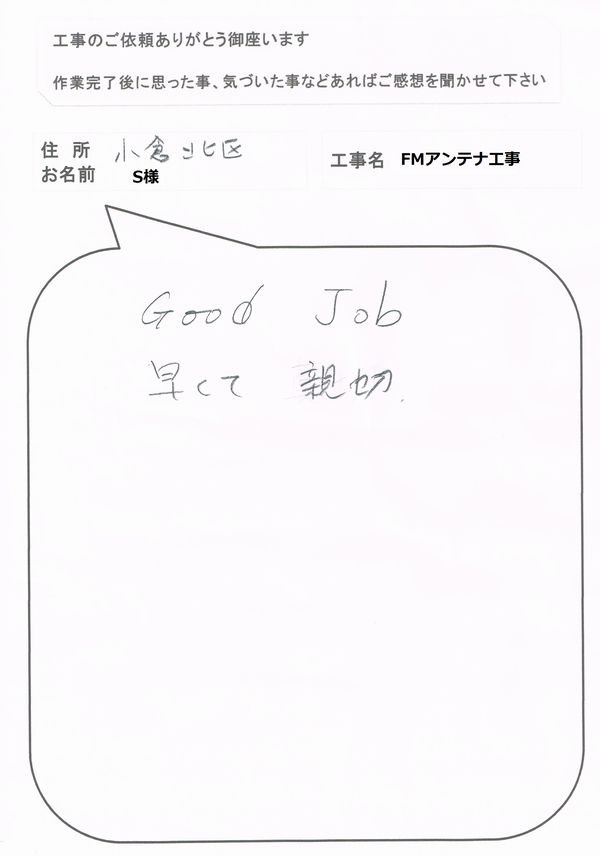 工事のご依頼ありがとう御座います
作業完了後に思った事、気づいた事などあればご感想を聞かせて下さい
住 所 小倉北区
お名前 S様
工事名 FMアンテナ工事
Good Job
早くて 親切.